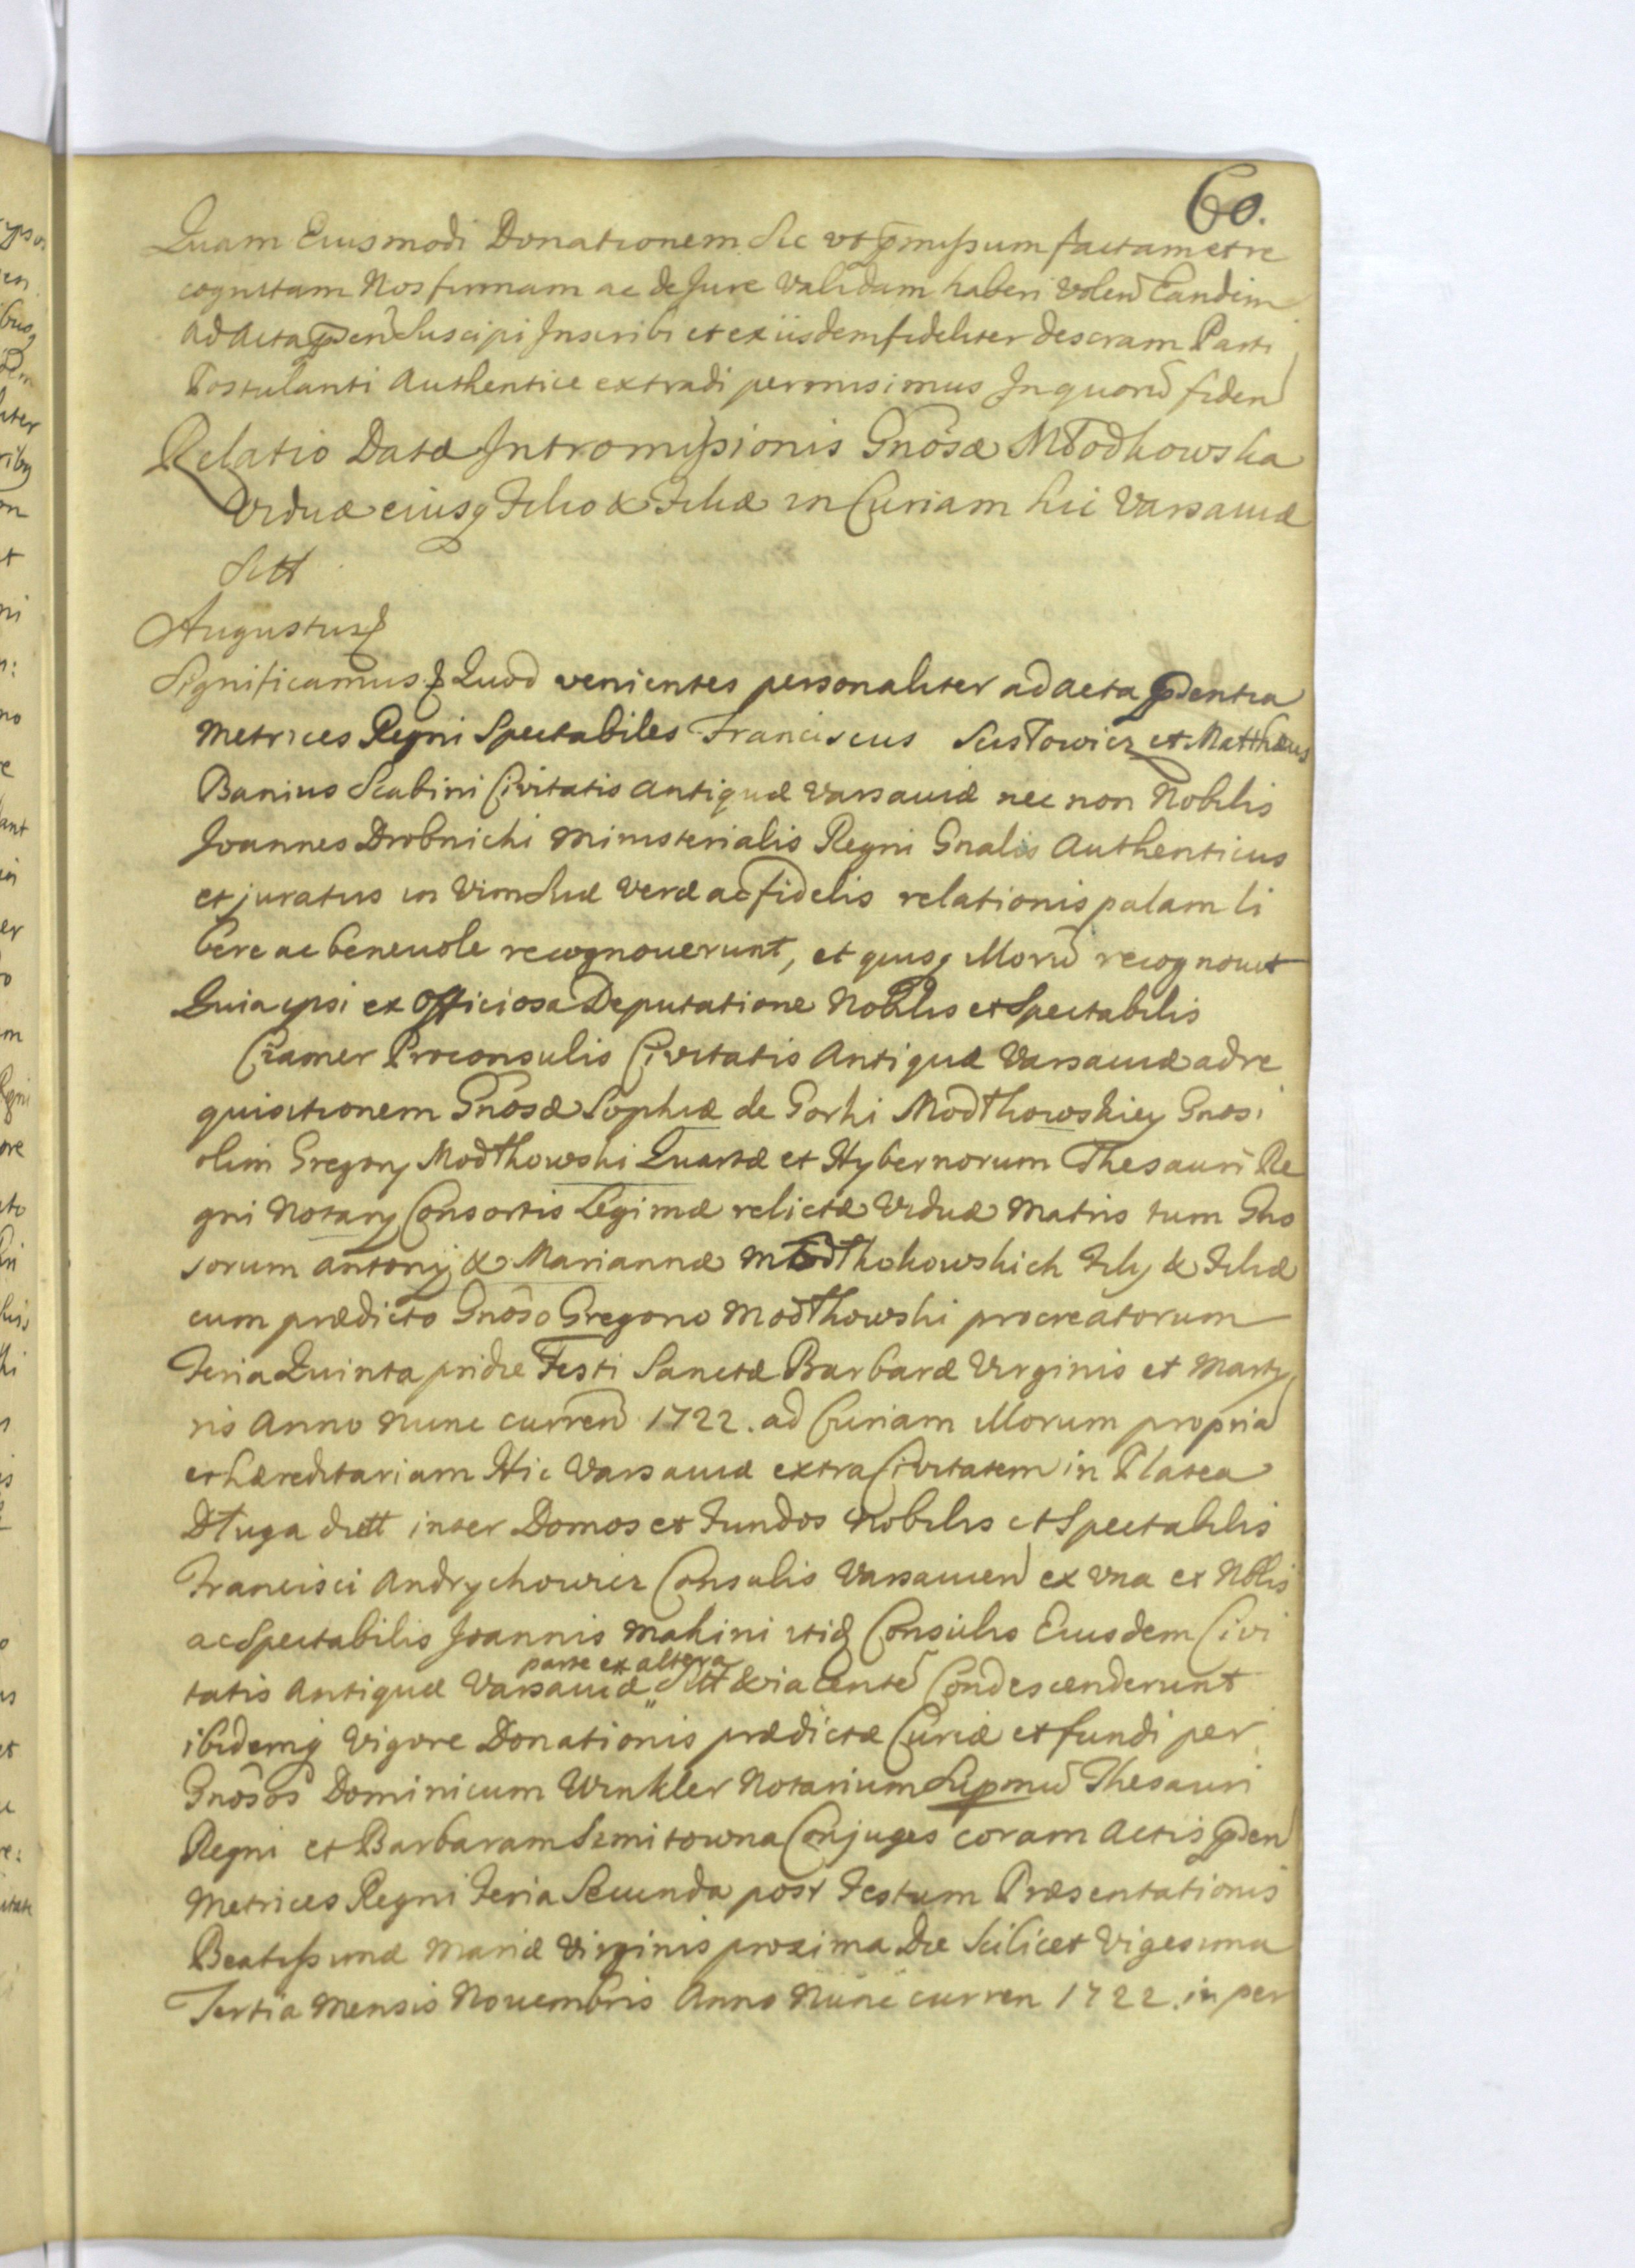 60.
Quam Eiusmodi Donationem Sic ut pmissum factam et re
cognitam Nos firmam ac de Jure Validam haberi Volen Eandem
ad Acta psen Suscipi Inscribi et ex iisdem fideliter descram Parti
Postulanti Authentice extradi permisimus In quoru fidem
Relatio Datæ Intromissionis Gnosæ Młodkowska
Viduæ eiusq Filio & Filiæ in Curiam hic Varsaviæ
Sitt
Augustus
Significamus Quod venientes personaliter ad acta psentia
Metrices Regni Spectabiles Franciscus Susłowicz et Matthæus
Banius Scabini Civitatis Antiquæ Varsaviæ nec non Nobilis
Joannes Drobnicki Ministerialis Regni Gnalis Authenticus
et juratus in Vim Suæ Veræ ac fidelis relationis palam li
bere ac beneuole recognouerunt, et quisq Illoru recognouit
Quia ipsi ex Officiosa Deputatione Nobilis et Spectabilis
Cramer Proconsulis Civitatis Antiquæ Varsauiæ ad re
quisitionem Gnosæ Sophiæ de Gorki Modłkowskiey Gnosi
olim Gregorij Modłkowski Quartæ et Hybernorum Thesauri Re
gni Notarij Consortis Legimæ relictæ Viduæ Matris tum Gno
sorum Antonij & Mariannæ Młodłkokowskich Filij & Filiæ
cum prædicto Gnoso Gregorio Modłkowski procreatorum
Feria Quinta pridie Festi Sanctæ Barbaræ Virginis et Marty
ris Anno Nunc curren 1722. ad Curiam Illorum propria
et hæreditariam Hic Varsauiæ extra Civitatem in Platea
Długa dictt inter Domos et Fundos Nobilis et Spectabilis
Francisci Andrychowicz Consulis Varsauien ex una et Nblis
ac Spectabilis Joannis Makini itid Consulis Eiusdem Civi
parte ex altera
tatis Antiquæ Varsauiæ Sitt & iacente Condescenderunt
ibidemq Vigore Donationis prædictæ Curiæ et fundi per
Gnosos Dominicum Winkler Notarium Suprmu Thesauri
Regni et Barbaram Szmitowna Conjuges coram Actis psen
Metrices Regni Feria Secunda post Festum Præsentationis
Beatissimæ Mariæ Virginis proxima Die Scilicet Vigesima
Tertia Mensis Nouembris Anno Nunc curren 1722. in per